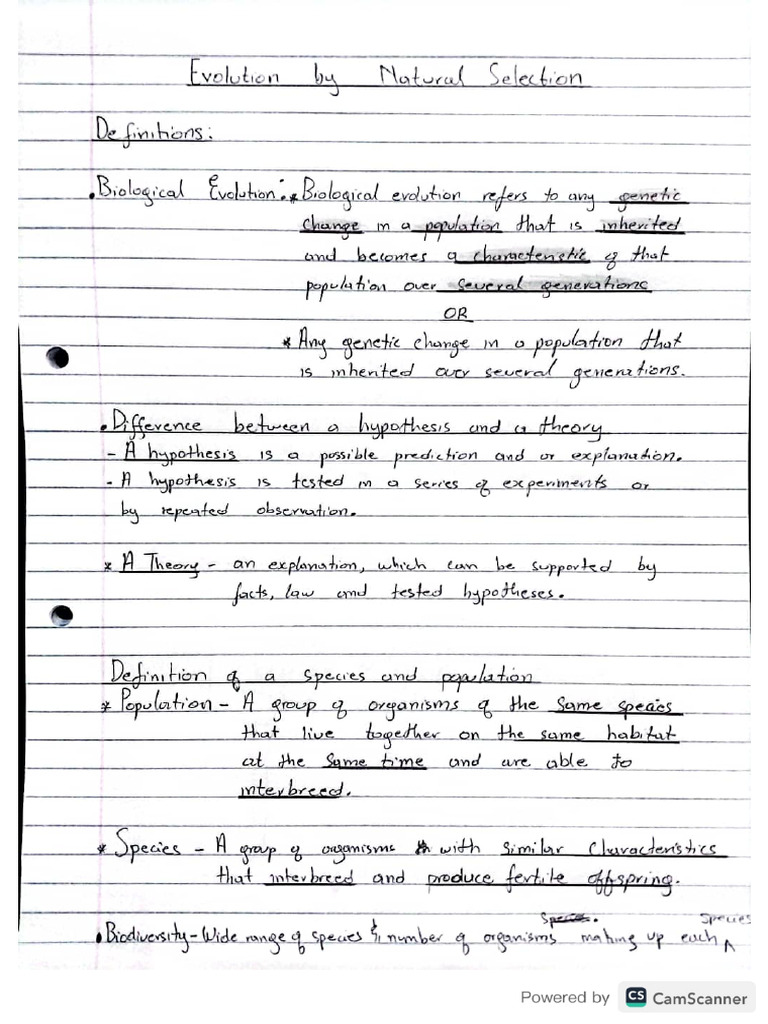 Evolution by Natural Selection
Definitions:
• Biological Evolution: * Biological evolution refers to any genetic
change in a population that is inherited
and becomes a characteristic of that
population over several generations
OR
* Any genetic change in a population that
is inherited over several generations.
• Difference between a hypothesis and a theory
- A hypothesis is a possible prediction and or explanation.
- A hypothesis is tested in a series of experiments or
by repeated observation.
* A Theory - an explanation, which can be supported by
facts, law and tested hypotheses.
Definition of a species and population
* Population - A group of organisms of the same species
that live together on the same habitat
at the same time and are able to
interbreed.
* Species - A group of organisms with similar characteristics
that interbreed and produce fertile offspring.
• Biodiversity - Wide range of species & number of organisms making up each species
Powered by CS CamScanner